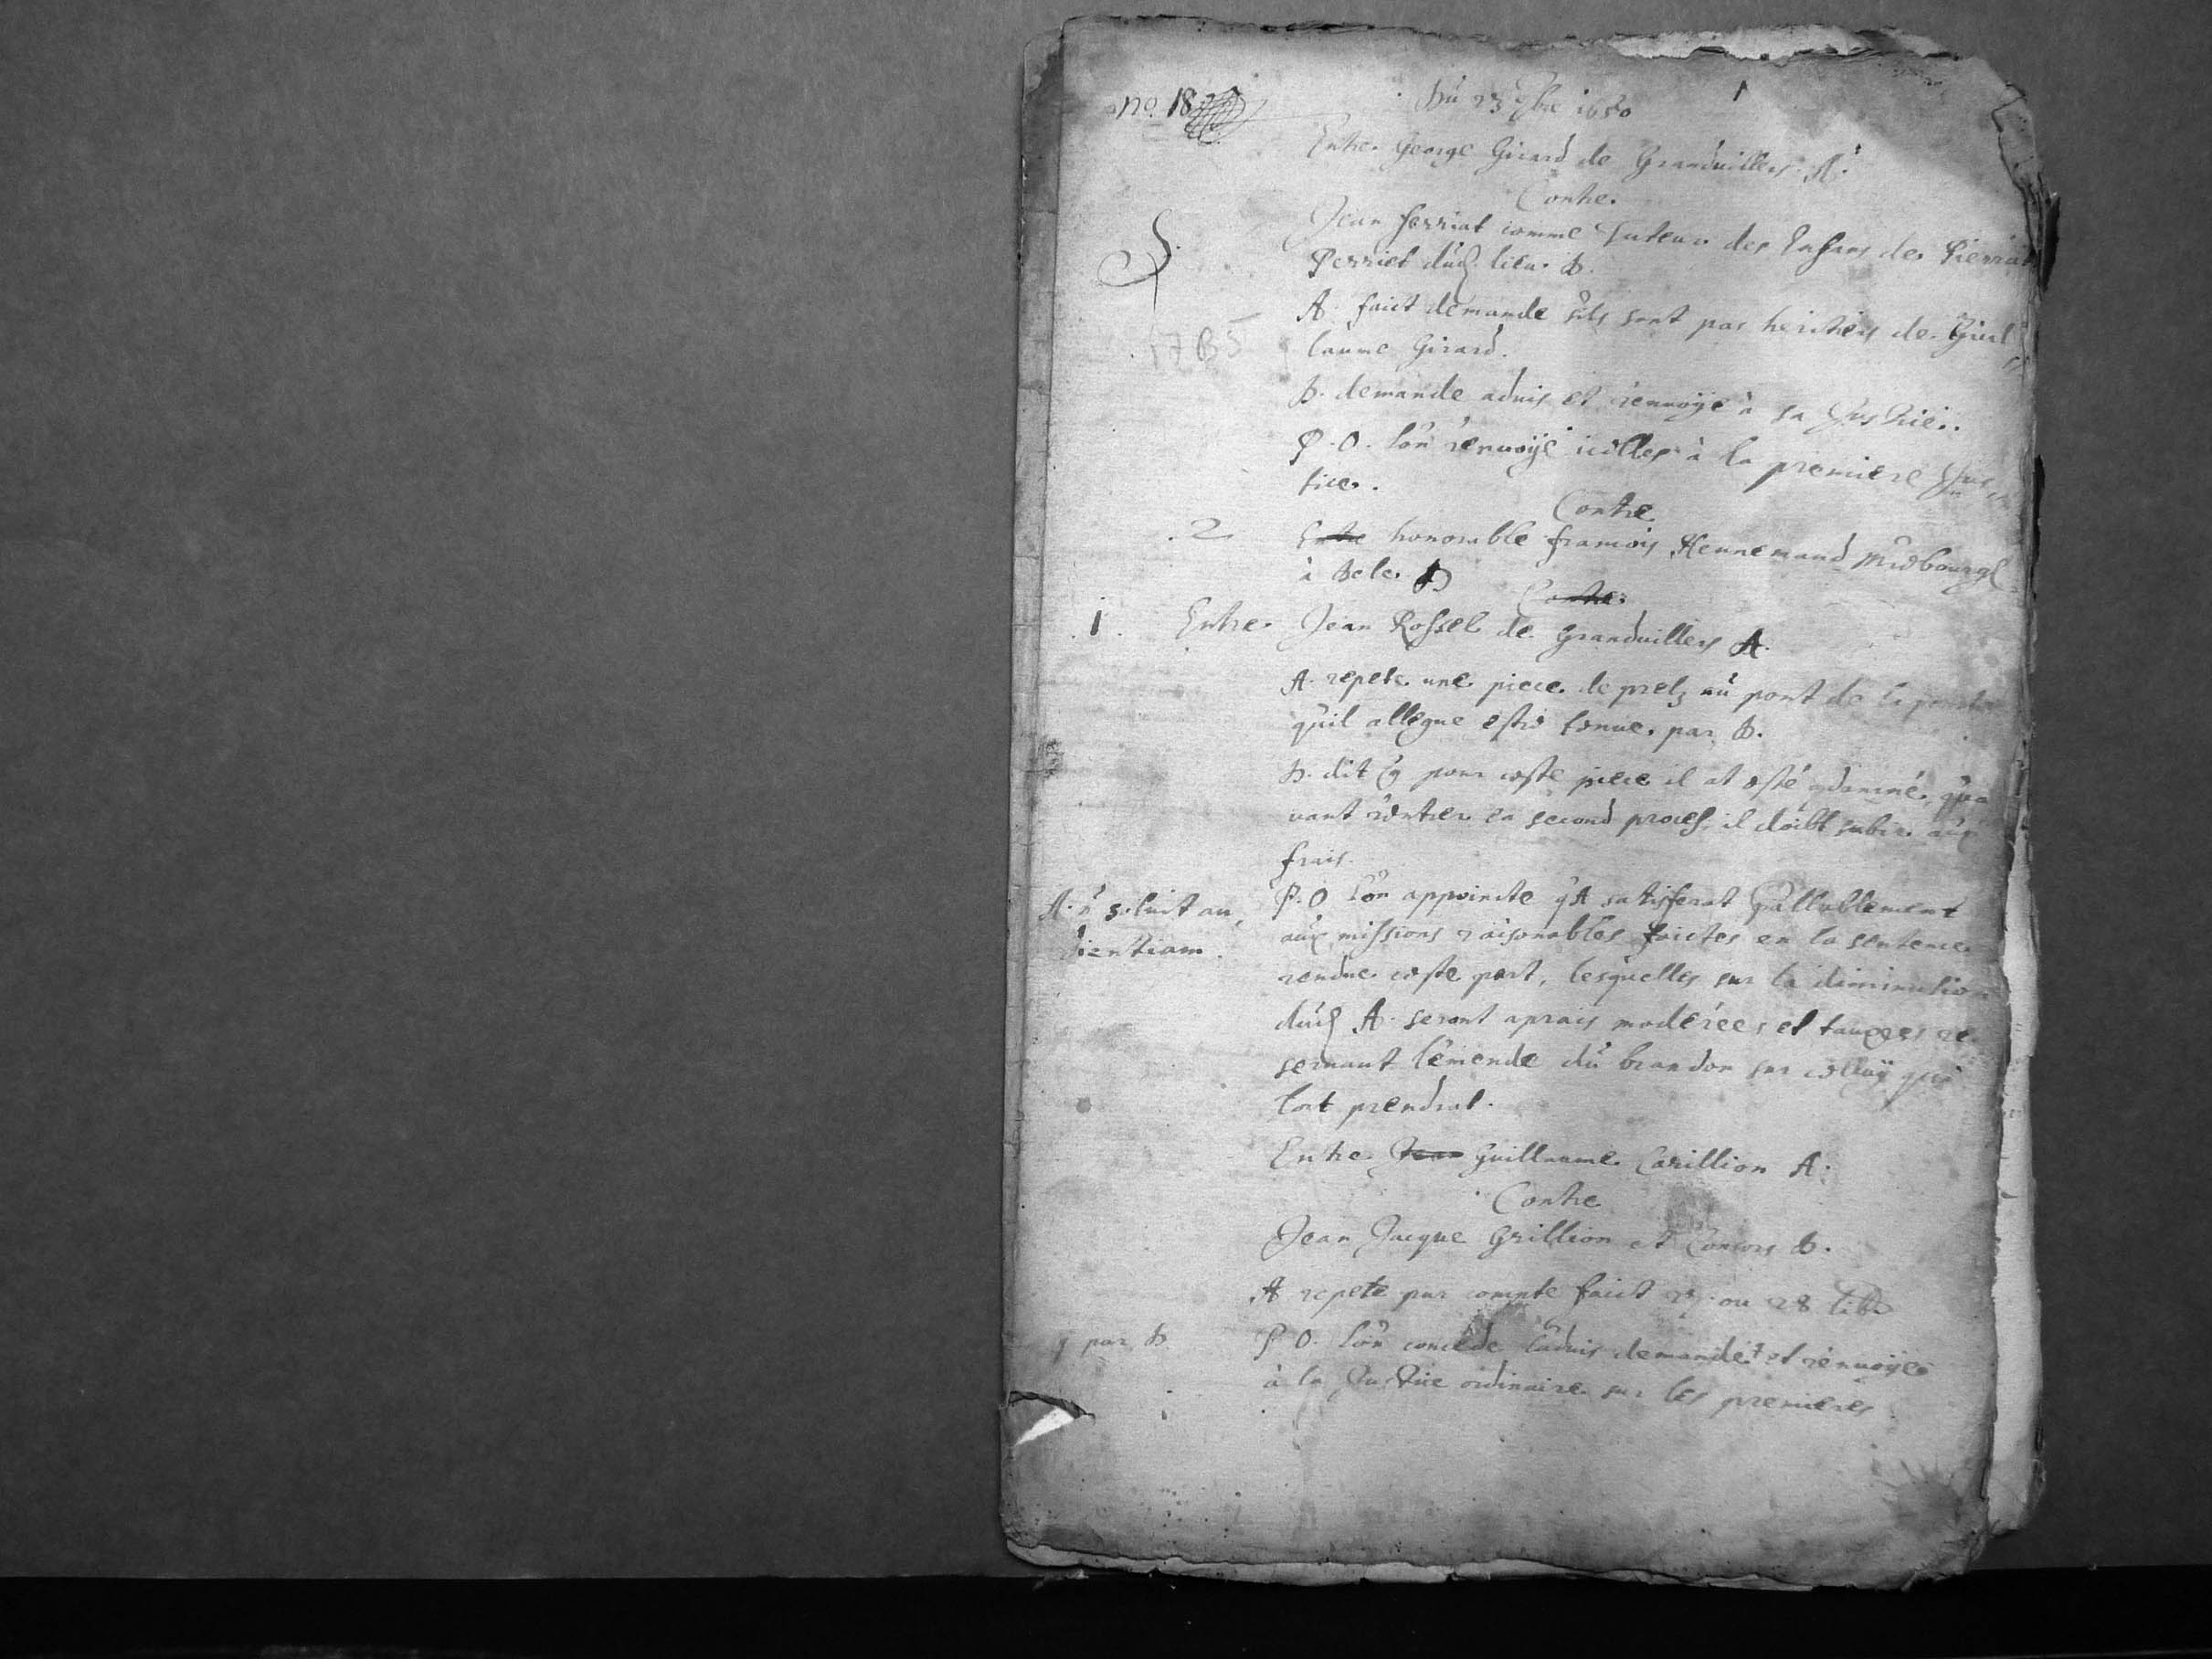 no. 18
1
Du 23 9bre 1650
Entre George Girard de Granduillers A.
Contre.
Jean ferriat comme tuteur des Enfans de Pierrat
Perriet dud. lieu. B.
A. faict demande s'ils sont pas heritiers de Guil
laume Girard.
17 B 5
B. demande aduis et renuoÿe à sa Justice.
P. O. l'on renuoÿe icelles à la premiere Jus
tice.
Contre
2 Entre honorable francois Hennemand bourg
à Dele. B
Contre
1. Entre Jean Rossel de Granduillers A.
A. repete une piece de prelz au pont de la
qu'il allegue estre tenue par B.
B. dit q pour ceste piece il at esté condamné, qua
uant rentrer en second proces, il doibt subir aux
frais.
A. soluit au
dientiam.
P. O l'on appointe q A satisferat preallablement
aux missions raisonables faictes en la sentence
rendue ceste part, lesquelles sur la diminution
dud A. seront aprais moderées et tauxees re
seruant l'emende du brandon sur celluÿ qui
tort prendrat.
Entre Jean Guillaume Carillion A.
Contre
Jean Jacque Grillion et Consors B.
A repete par compte faict 27 ou 28 lib
par B.
P O. l'on concede l'aduis demandé et renuoÿée
à la Justice ordinaire sur les premieres